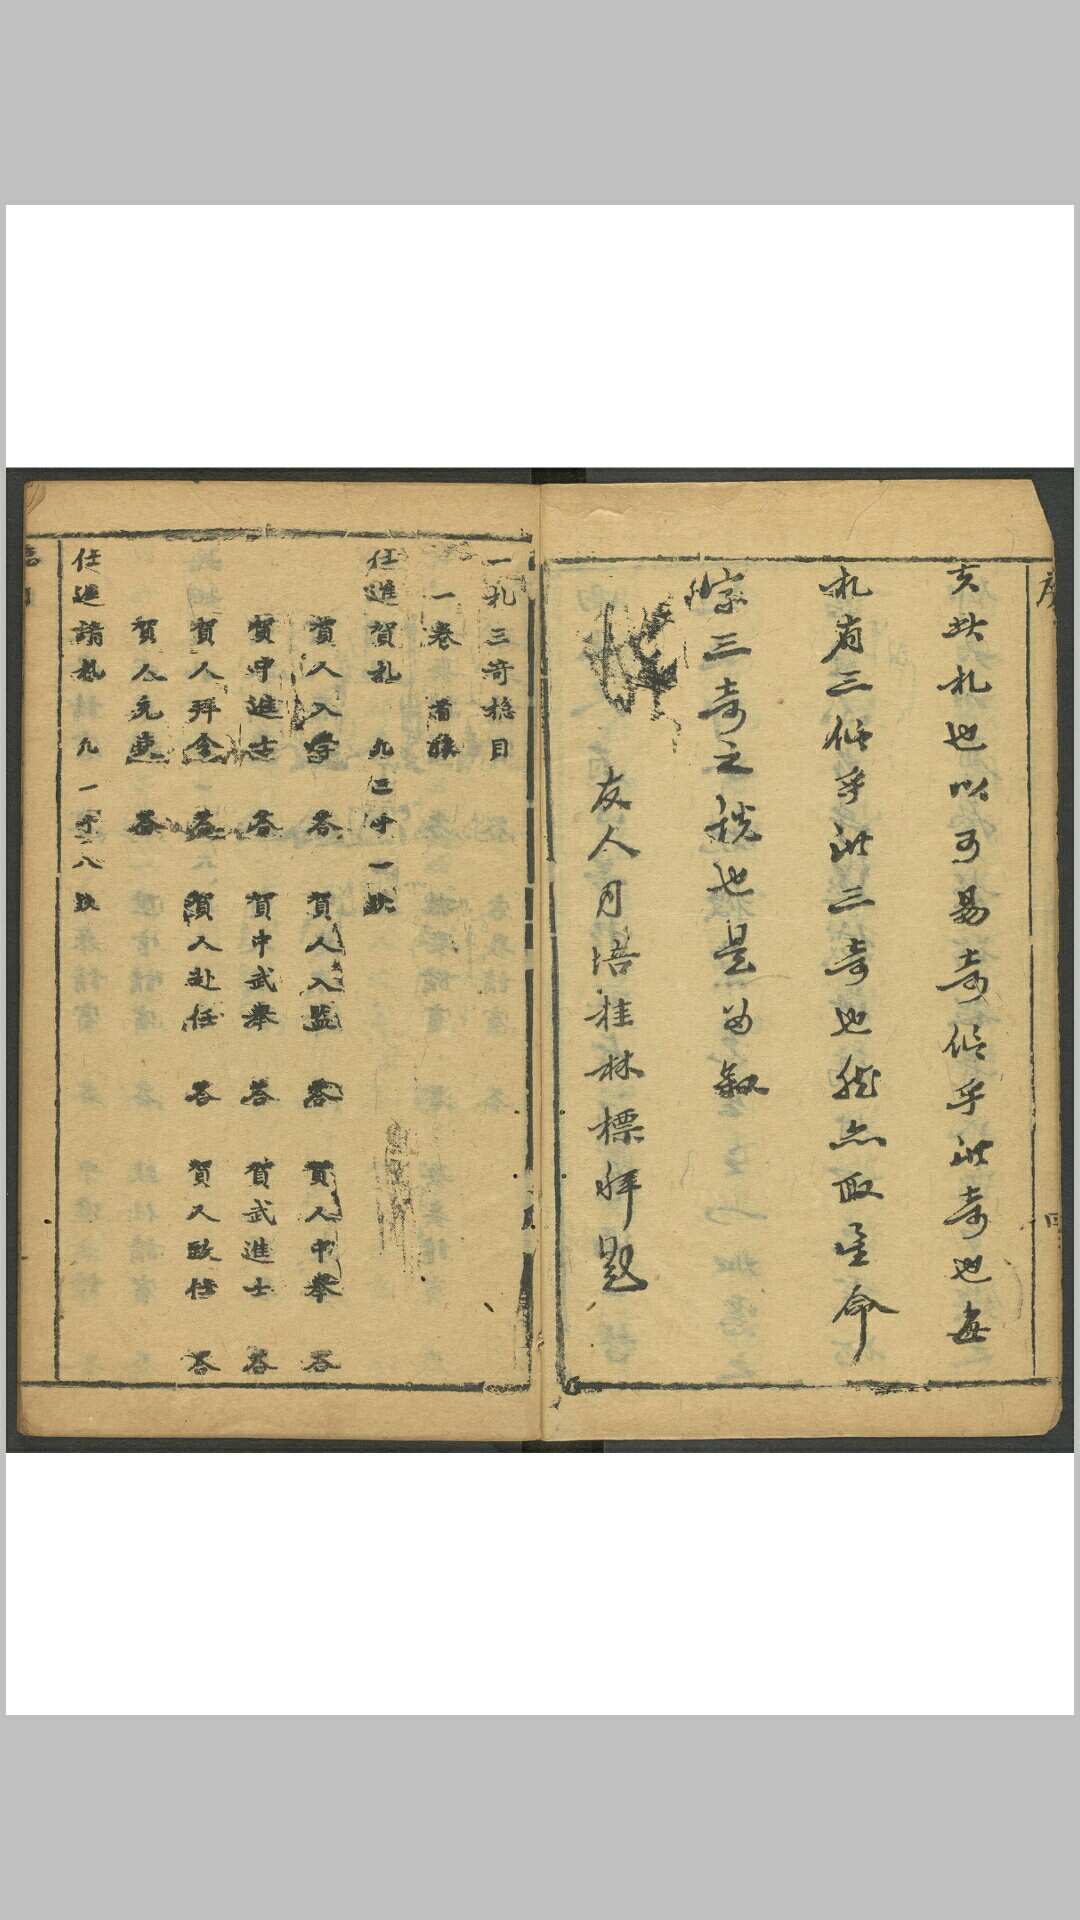 夫此札也以可易奇修乎此奇也每
札有三修乎此三奇也然亦取至命
宗三奇之哉也是为叙
友人月培桂林標拜題
一札三奇總目
一卷 首
仕進賀札 凡二十一欵
賀人入學 答 賀人入監 答 賀人中舉 答
賀中進士 答 賀中武舉 答 賀武進士 答
賀人拜令 答 賀人赴任 答 賀人致仕 答
賀人充吏 答
仕進請札 凡一十八欵